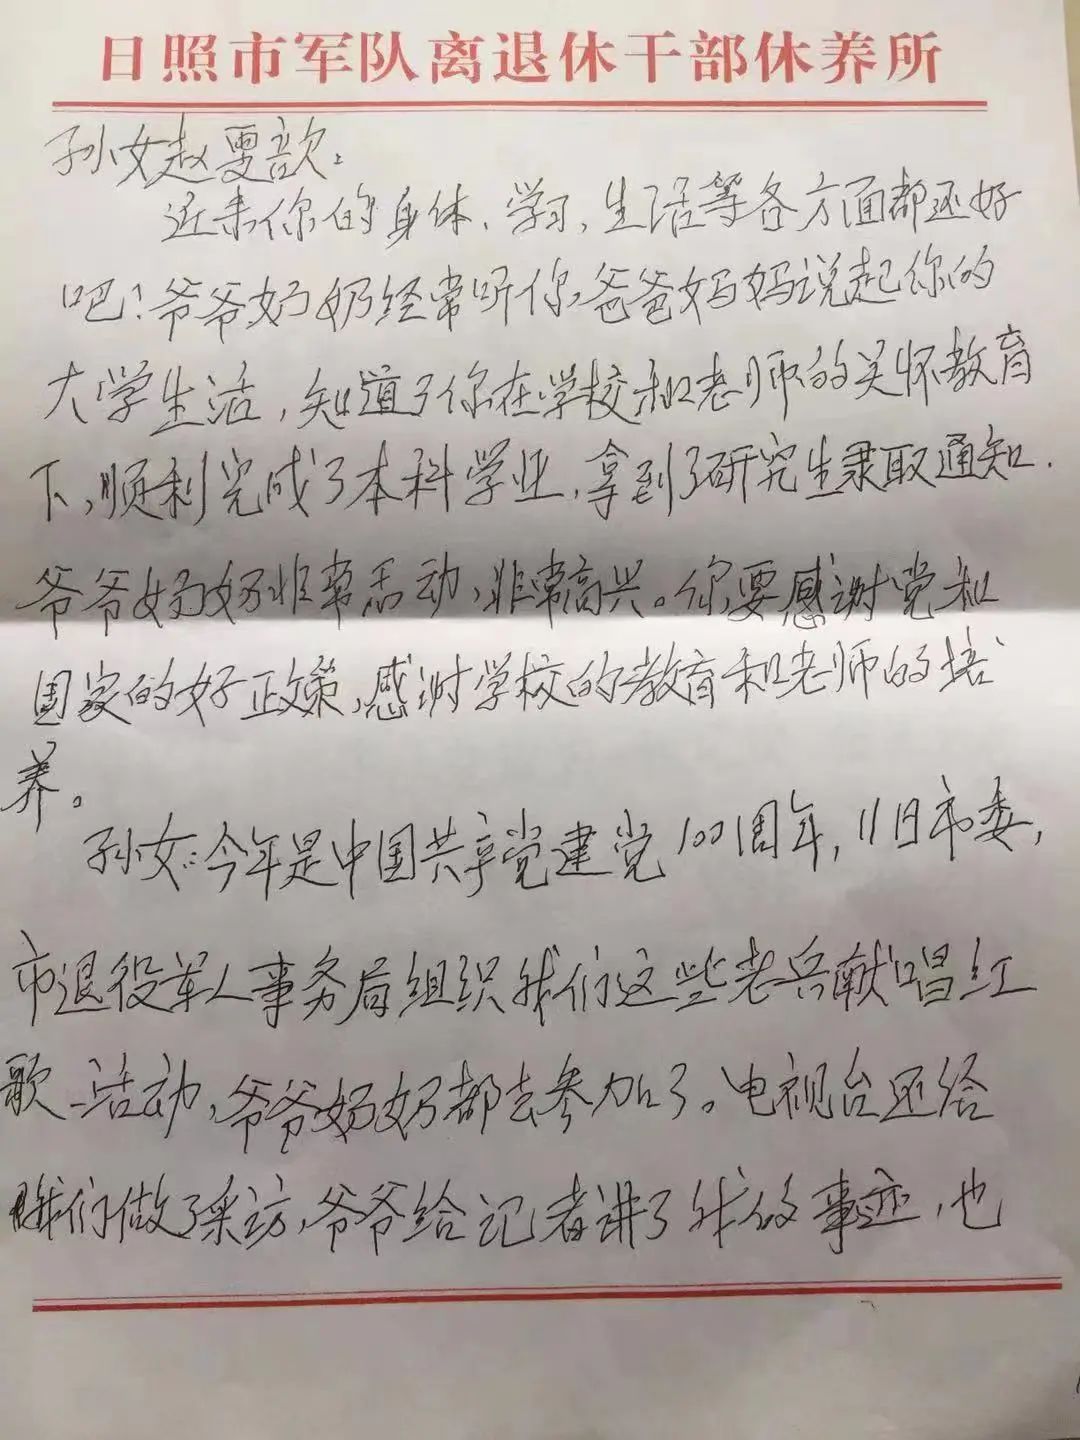 日照市军队离退休干部休养所
孙女赵雯歆：
近来你的身体、学习、生活等各方面都还好
吧！爷爷奶奶经常听你爸爸妈妈说起你的
大学生活，知道了你在学校和老师的关怀教育
下，顺利完成了本科学业，拿到了研究生录取通知.
爷爷奶奶非常激动，非常高兴。你要感谢党和
国家的好政策，感谢学校的教育和老师的培
养。
孙女：今年是中国共产党建党100周年，11日市委，
市退役军人事务局组织我们这些老兵献唱红
歌活动，爷爷奶奶都去参加了。电视台还给
我们做了采访，爷爷给记者讲了我的事迹，也